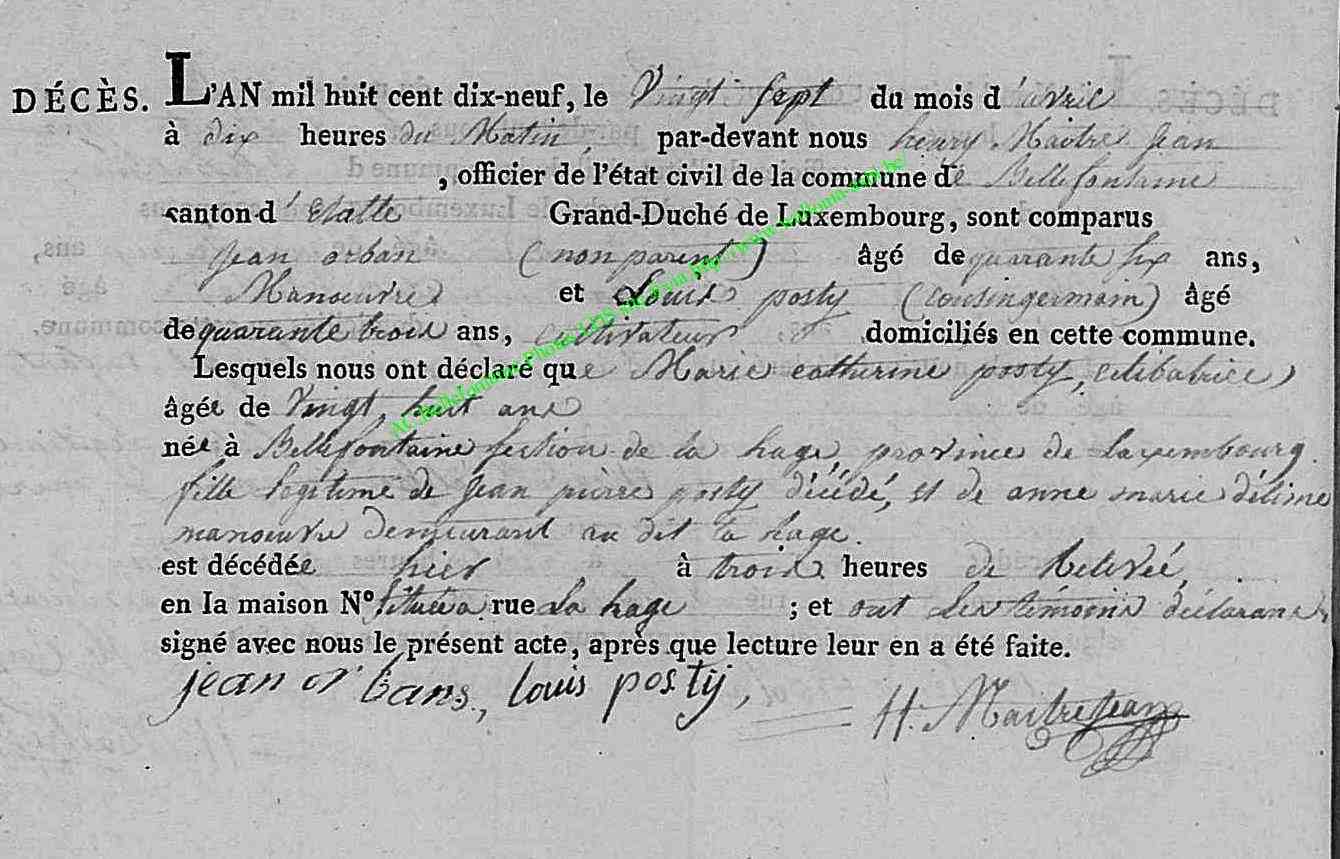 DÉCÈS. L'AN mil huit cent dix-neuf, le Vingt sept du mois d'avril
à dix heures du Matin, par-devant nous henry Maitre Jean
, officier de l'état civil de la commune de Bellefontaine
canton d'Etalle Grand-Duché de Luxembourg, sont comparus
Jean orban (non parent) âgé de quarante six ans,
Manoeuvre et Louis posty (cousin germain) âgé
de quarante trois ans, cultivateur domiciliés en cette commune.
Lesquels nous ont déclaré que Marie catherine posty, celibatrice
âgée de Vingt huit ans
née à Bellefontaine section de la hage, province de Luxembourg.
fille legitime de Jean pierre posty décédé, et de anne marie
manoeuvre demeurant au dit la hage.
est décédée hier à trois heures de Relevée,
en la maison N° située rue la hage ; et ont les témoins déclarans
signé avec nous le présent acte, après que lecture leur en a été faite.
jean orbans, louis posty,
H. Maitrejean